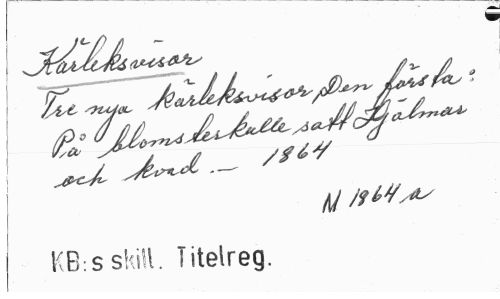 Kärleksvisor
Tre nya kärleksvisor, Den första:
På blomsterkulle satt Hjälmar
och kvad. — 1864
M 1864 a
KB:s skill. Titelreg.